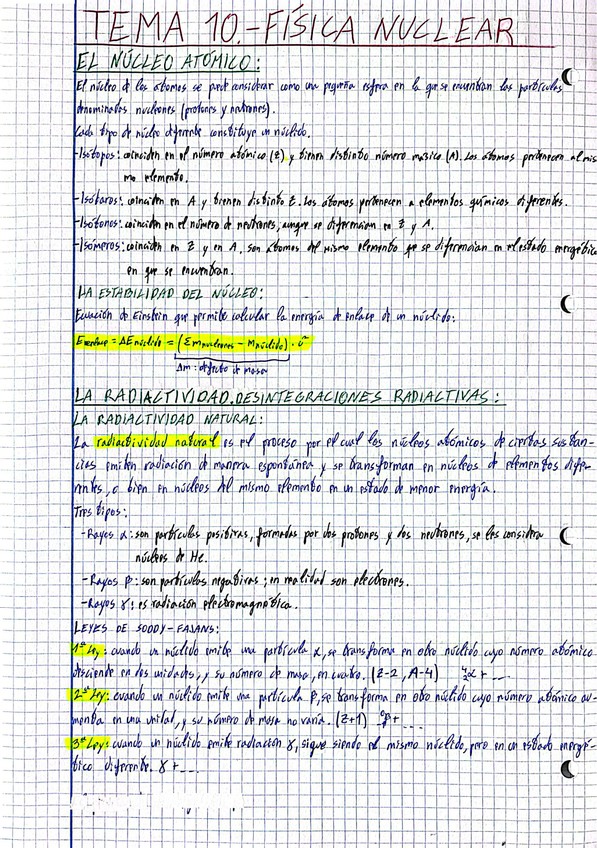 TEMA 10.-FÍSICA NUCLEAR
EL NÚCLEO ATÓMICO:
El núcleo de los átomos se puede considerar como una pequeña esfera en la que se encuentran las partículas
denominadas nucleones (protones y neutrones).
Cada tipo de núcleo diferente constituye un núclido.
-Isótopos: coinciden en el número atómico (Z) y tienen distinto número másico (A). Los átomos pertenecen al mis
mo elemento.
-Isóbaros: coinciden en A y tienen distinto Z. Los átomos pertenecen a elementos químicos diferentes.
-Isótonos: coinciden en el número de neutrones, aunque se diferencian en Z y A.
-Isómeros: coinciden en Z y en A. Son átomos del mismo elemento que se diferencian en el estado energético
en que se encuentran.
LA ESTABILIDAD DEL NÚCLEO:
Ecuación de Einstein que permite calcular la energía de enlace de un núclido:
Eenlace = ΔEnúclido = (Σmnucleones - Mnúclido) · c²
Δm: defecto de masa
LA RADIACTIVIDAD. DESINTEGRACIONES RADIACTIVAS:
LA RADIACTIVIDAD NATURAL:
La radiactividad natural es el proceso por el cual los núcleos atómicos de ciertas sustan-
cias emiten radiación de manera espontánea y se transforman en núcleos de elementos dife-
rentes, o bien en núcleos del mismo elemento en un estado de menor energía.
Tres tipos:
-Rayos α: son partículas positivas, formadas por dos protones y dos neutrones, se les considera
núcleos de He.
-Rayos β: son partículas negativas; en realidad son electrones.
-Rayos γ: es radiación electromagnética.
LEYES DE SODDY-FAJANS:
1ª Ley: cuando un núclido emite una partícula α, se transforma en otro núclido cuyo número atómico
desciende en dos unidades, y su número de masa, en cuatro. (Z-2, A-4) ⁴₂α + ...
2ª Ley: cuando un núclido emite una partícula β, se transforma en otro núclido cuyo número atómico au-
menta en una unidad, y su número de masa no varía. (Z+1) β + ...
3ª Ley: cuando un núclido emite radiación γ, sigue siendo el mismo núclido, pero en un estado energé-
tico diferente. γ + ...